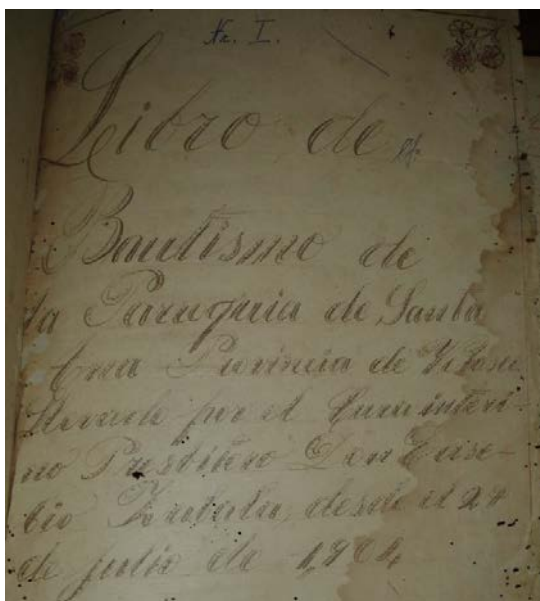 Nr. I.
Libro de
Bautismo de
la Parroquia de Santa
Ana Provincia de
llevado por el Cura interi-
no Presbitero Don Euse-
bio desde el 24
de julio de 1,904